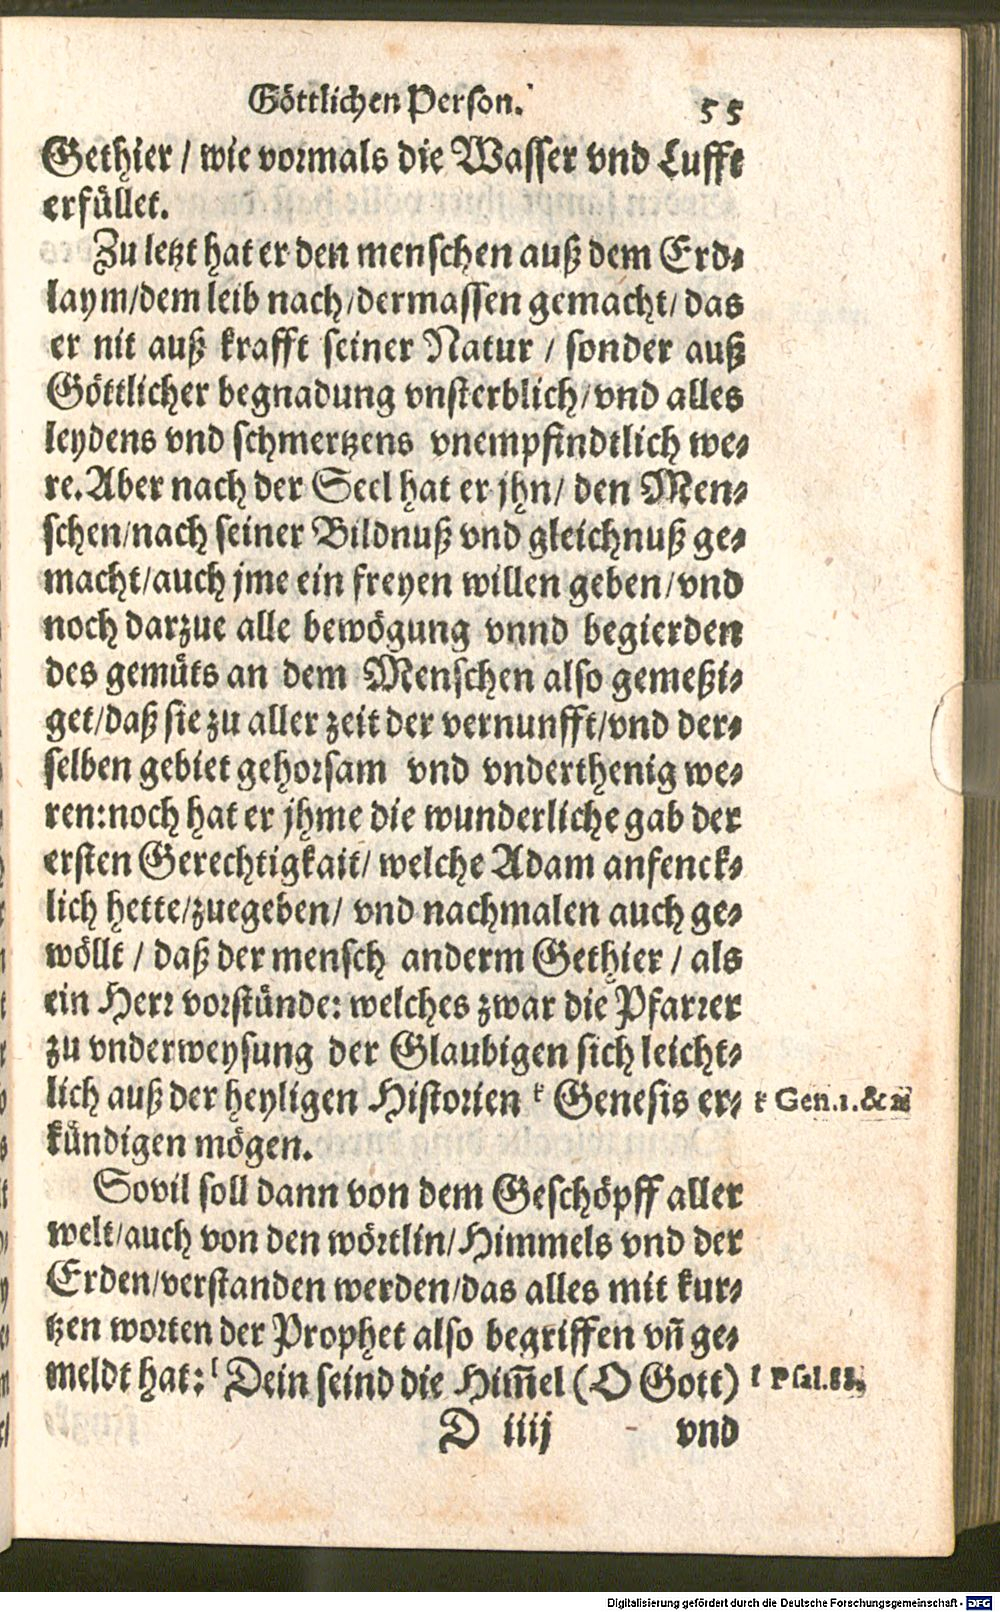 Göttlichen Person. 55
Gethier / wie vormals die Wasser vnd Lufft
erfüllet.
Zu letzt hat er den menschen auß dem Erd-
laym/dem leib nach/dermassen gemacht/ das
er nit auß krafft seiner Natur / sonder auß
Göttlicher begnadung vnsterblich/vnd alles
leydens vnd schmertzens vnempfindtlich we-
re. Aber nach der Seel hat er jhn/ den Men-
schen/nach seiner Bildnuß vnd gleichnuß ge-
macht/auch jme ein freyen willen geben/vnd
noch darzue alle bewögung vnnd begierden
des gemüts an dem Menschen also gemeßi-
get/daß sie zu aller zeit der vernunfft/vnd der-
selben gebiet gehorsam vnd vnderthenig we-
ren: noch hat er jhme die wunderliche gab der
ersten Gerechtigkait/ welche Adam anfenck-
lich hette/zuegeben/ vnd nachmalen auch ge-
wöllt / daß der mensch anderm Gethier / als
ein Herr vorstünde: welches zwar die Pfarrer
zu vnderweysung der Glaubigen sich leicht-
lich auß der heyligen Historien k Genesis er- k Gen.1.& 2
kündigen mögen.
Sovil soll dann von dem Geschöpff aller
welt/auch von den wörtlin/Himmels vnd der
Erden/verstanden werden/das alles mit kur-
tzen worten der Prophet also begriffen vñ ge-
meldt hat: l Dein seind die Him̃el (O Gott) l Psal.88.
D iiij vnd
Digitalisierung gefördert durch die Deutsche Forschungsgemeinschaft - DFG